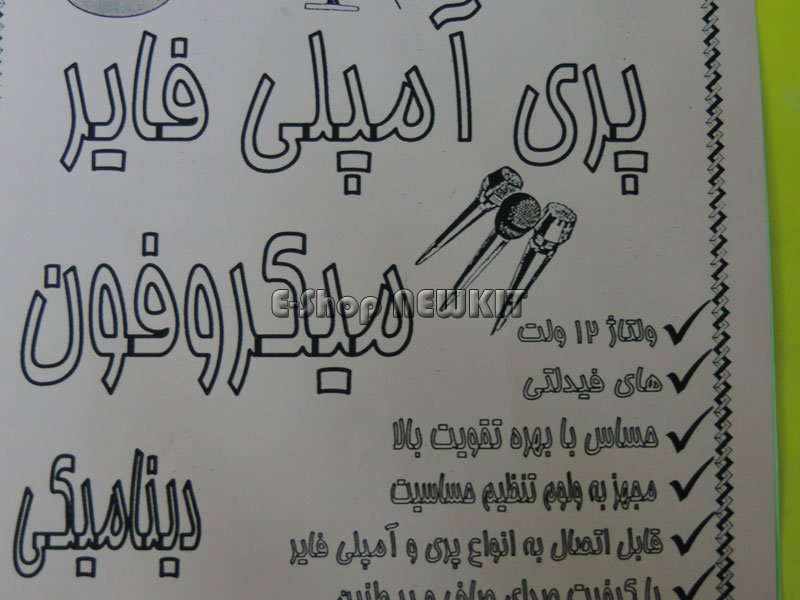 پری آمپلی فایر
میکروفون
دینامیکی
E-Shop NEWKIT
ولتاژ ۱۲ ولت
های فیدلتی
حساس با بهره تقویت بالا
مجهز به ولوم تنظیم حساسیت
قابل اتصال به انواع پری و آمپلی فایر
با کیفیت صدای صاف و